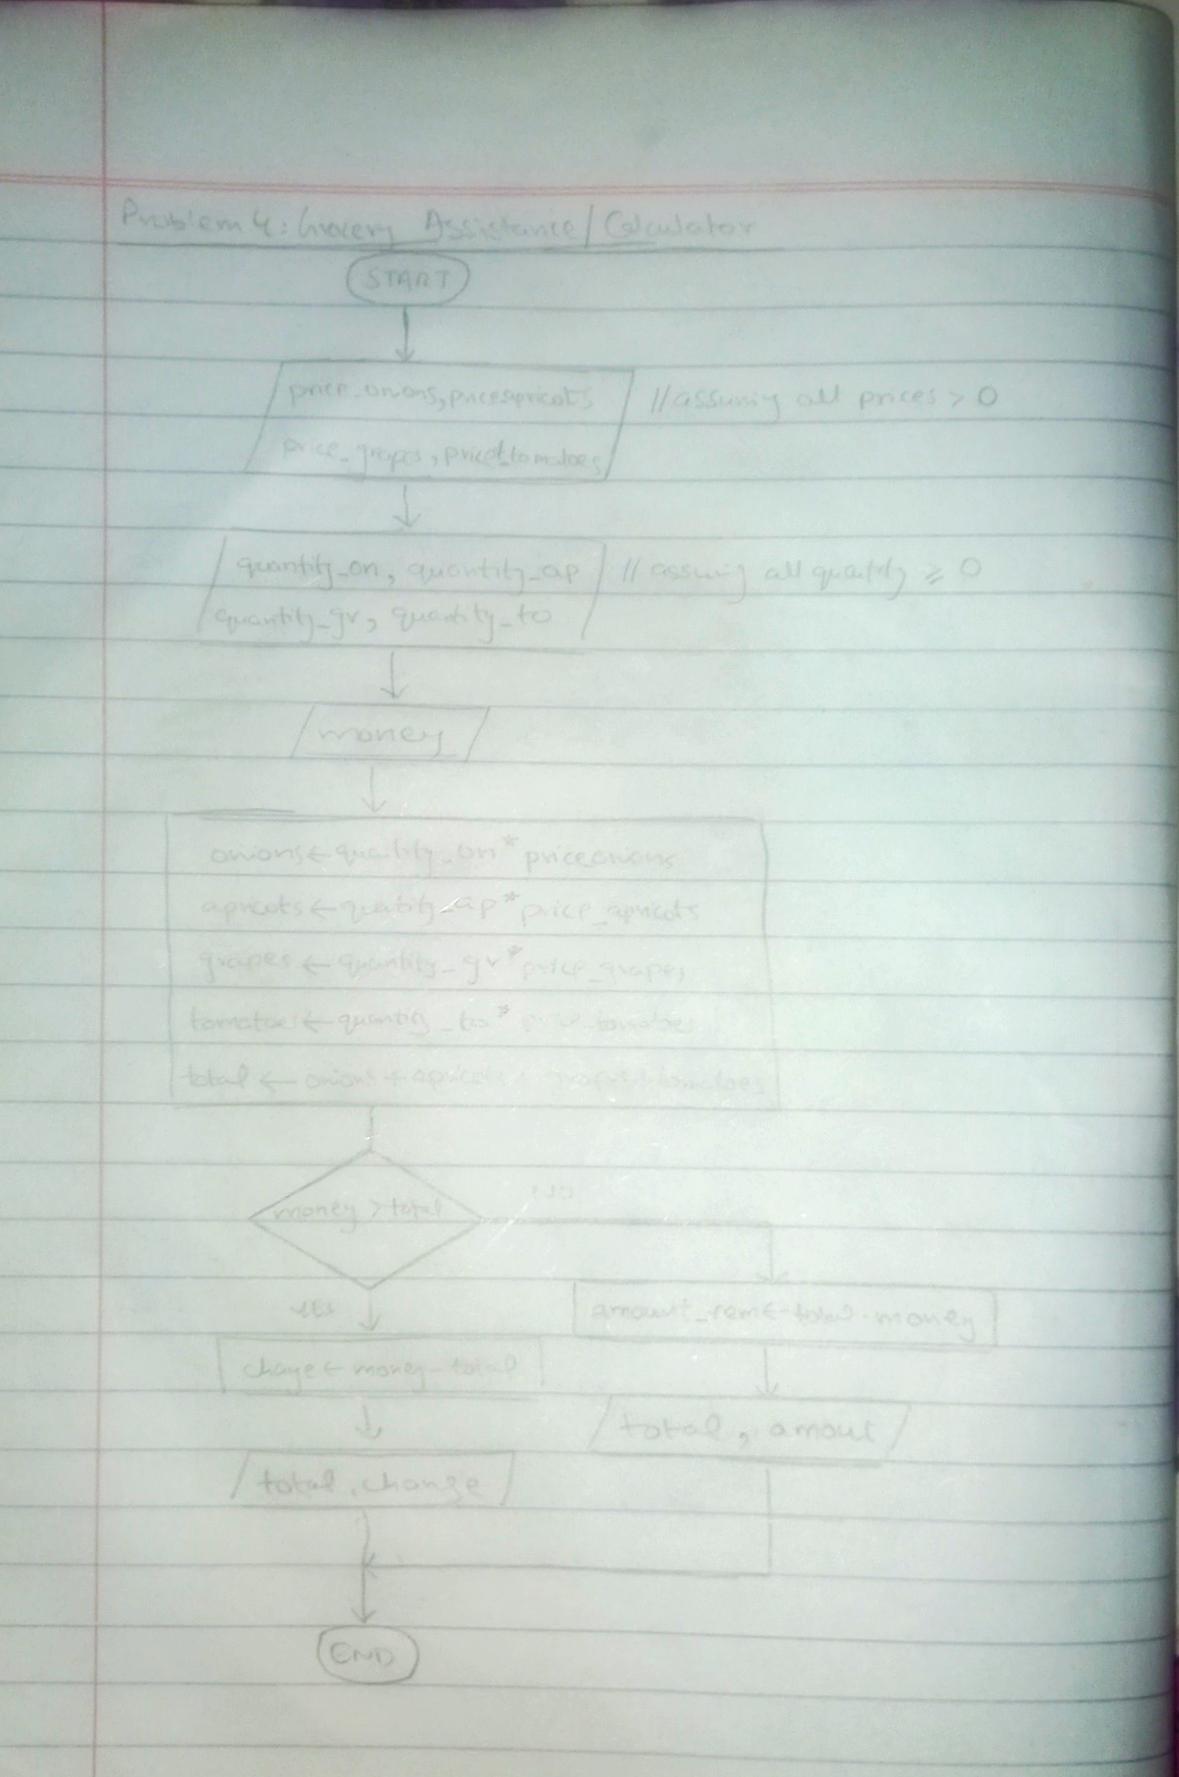 Problem 4: Grocery Assistance/Calculator
START
price_onions, pricesapricots //assuming all prices > 0
price_grapes, price_tomatoes
quantity_on, quantity_ap //assuming all quantity ≥ 0
quantity_gr, quantity_to
money
onions ← quantity_on * priceonions
apricots ← quatity_ap * price_apricots
grapes ← quantity_gr * price_grapes
tomatoes ← quantity_to * price_tomatoes
total ← onions + apricots + grapes + tomatoes
money > total
YES
amount_rem ← total - money
change ← money - total
total, amout
total, change
END